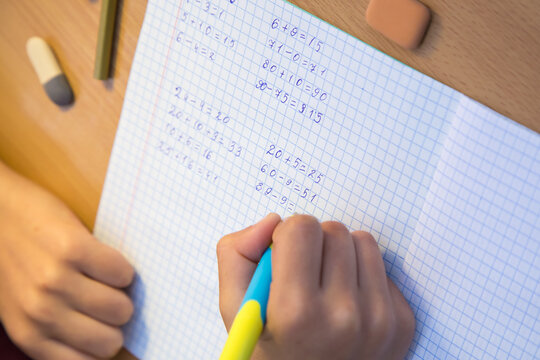 5+10=15
6-4=2
24-4=20
20+10+3=33
10+6=16
25+16=41
6+9=15
71-0=71
80+10=90
90-75=315
20+5=25
60-9=51
80-9=